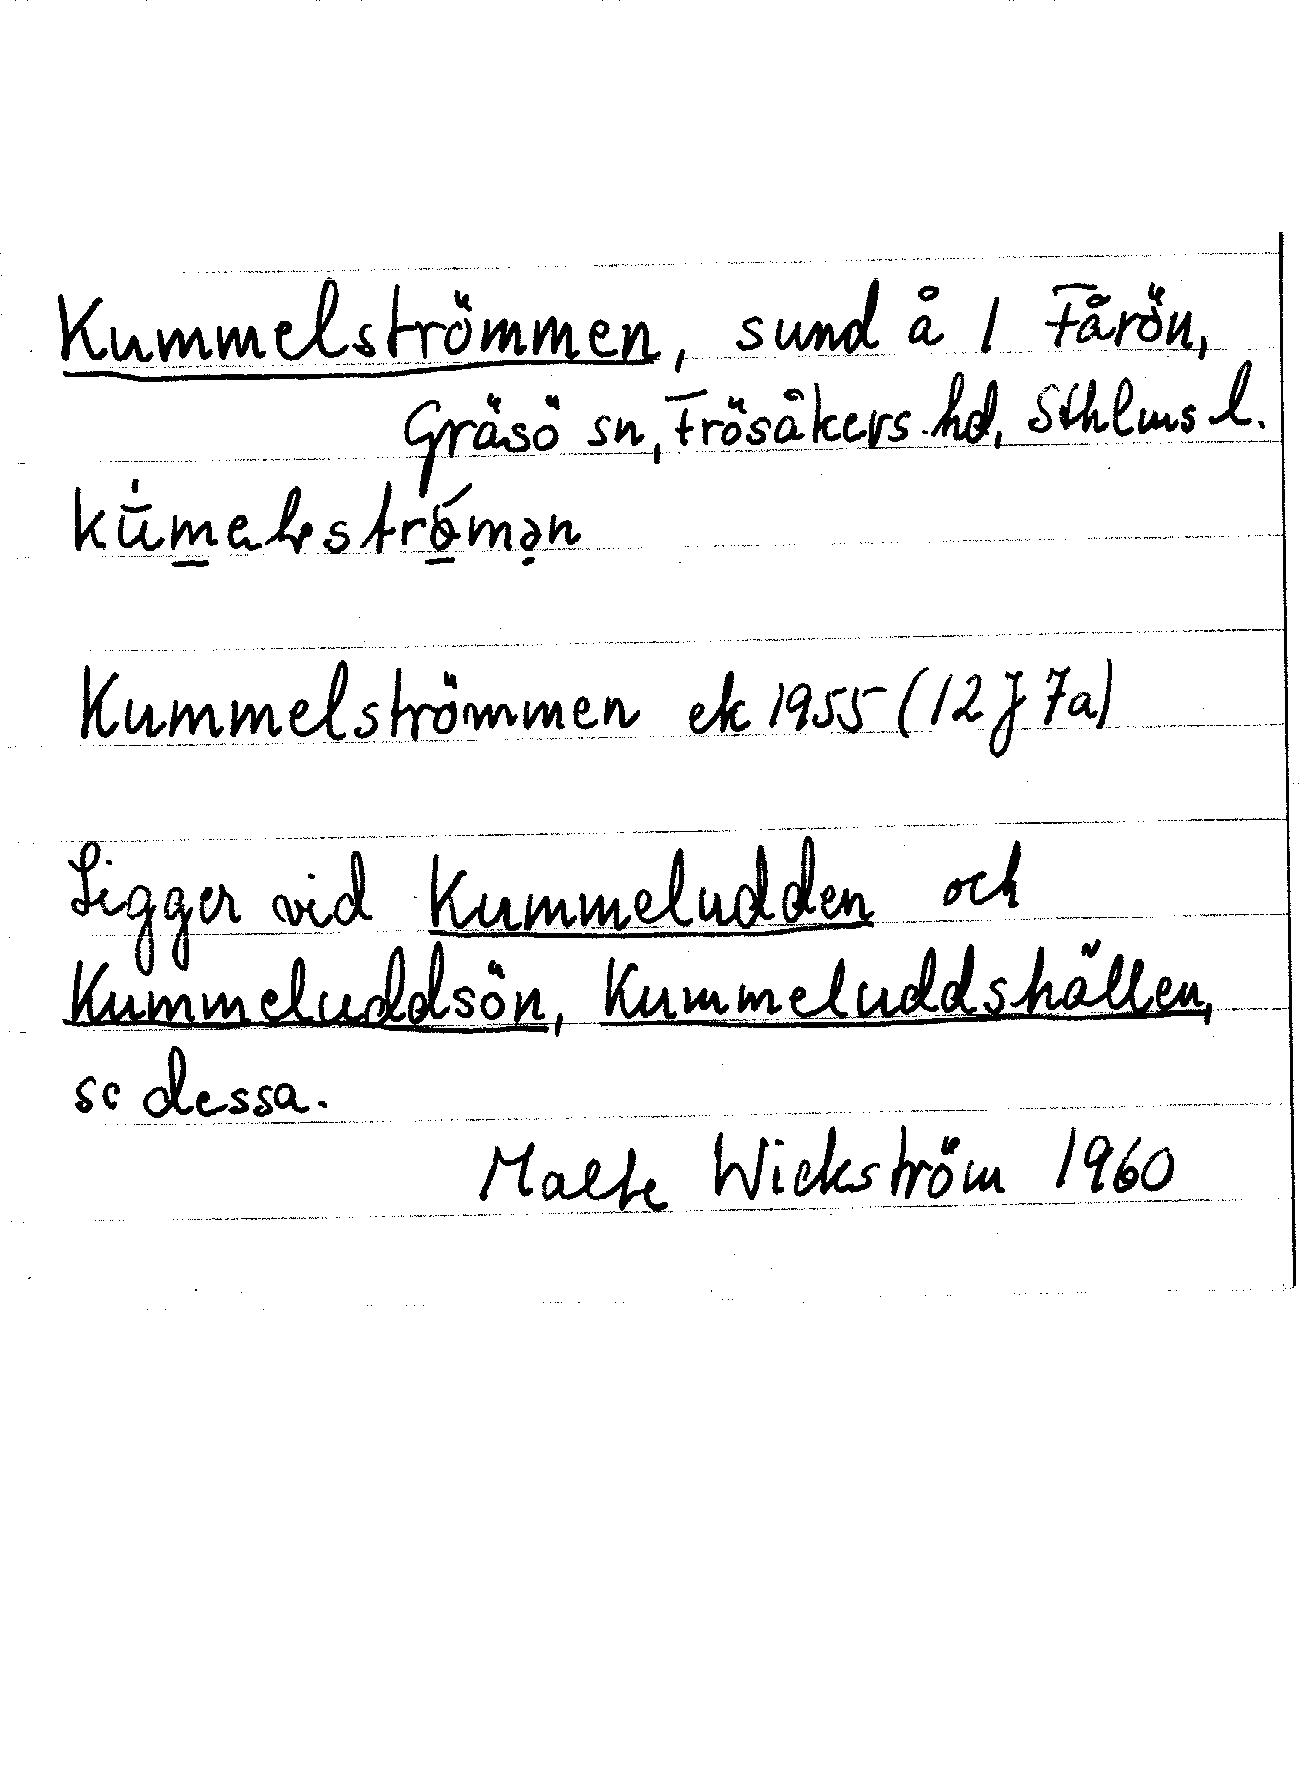 Kummelströmmen, sund å 1 Fårön,
Gräsö sn, Frösåkers hd, Sthlms l.
Kummelströmmen ek 1955 (12 J 7a)
Ligger vid Kummeludden och
Kummeluddsön, Kummeluddshällen,
se dessa.
Malte Wickström 1960